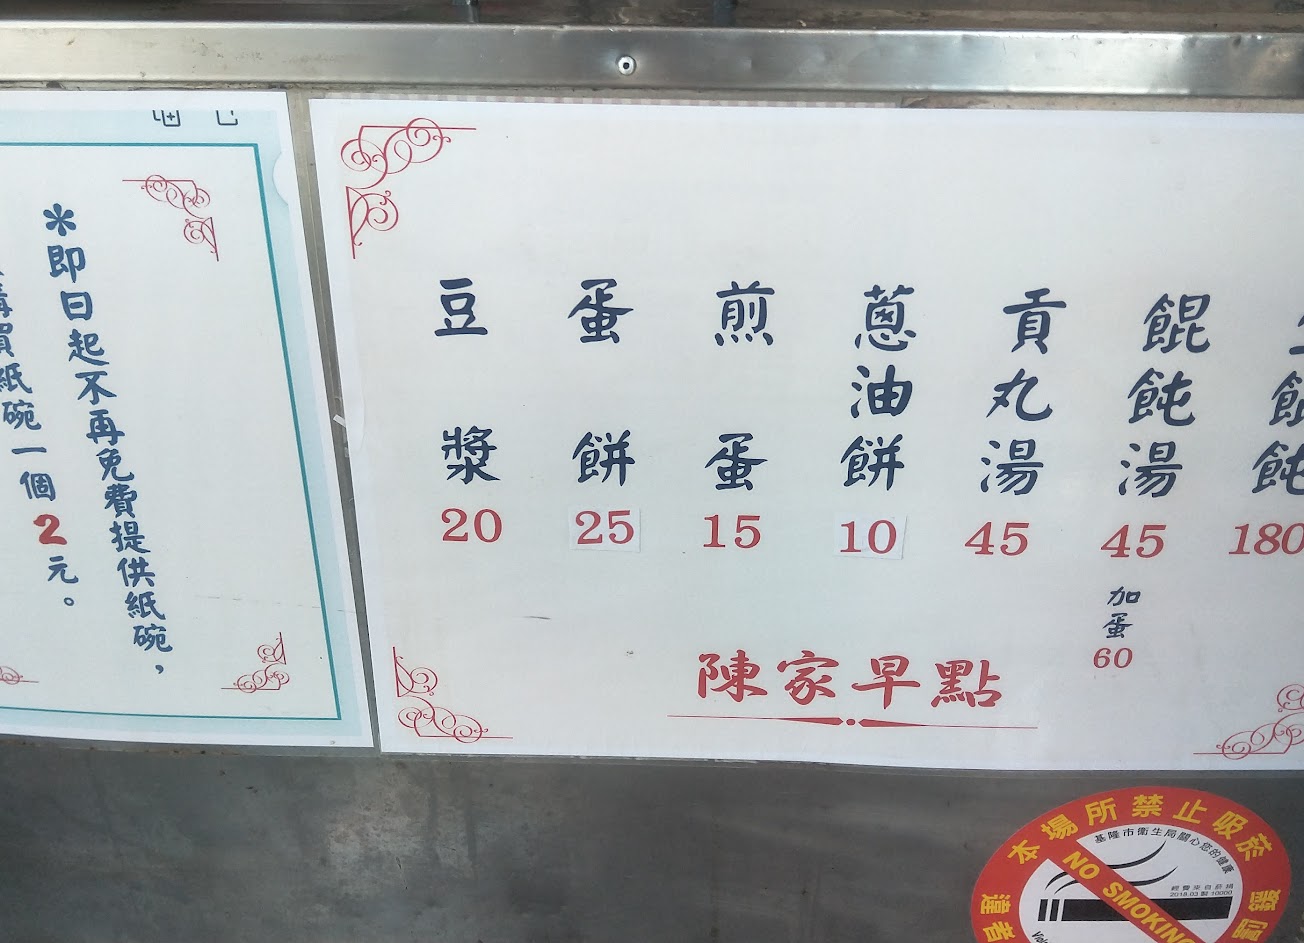 ＊即日起不再免費提供紙碗，
購買紙碗一個2元。
餛飩湯 45
加蛋 60
貢丸湯 45
蔥油餅 10
煎蛋 15
蛋餅 25
豆漿 20
180
陳家早點
本場所禁止吸菸
基隆市衛生局關心您的健康
經費來自菸捐
2018.03 製 10000
NO SMOKING
違者